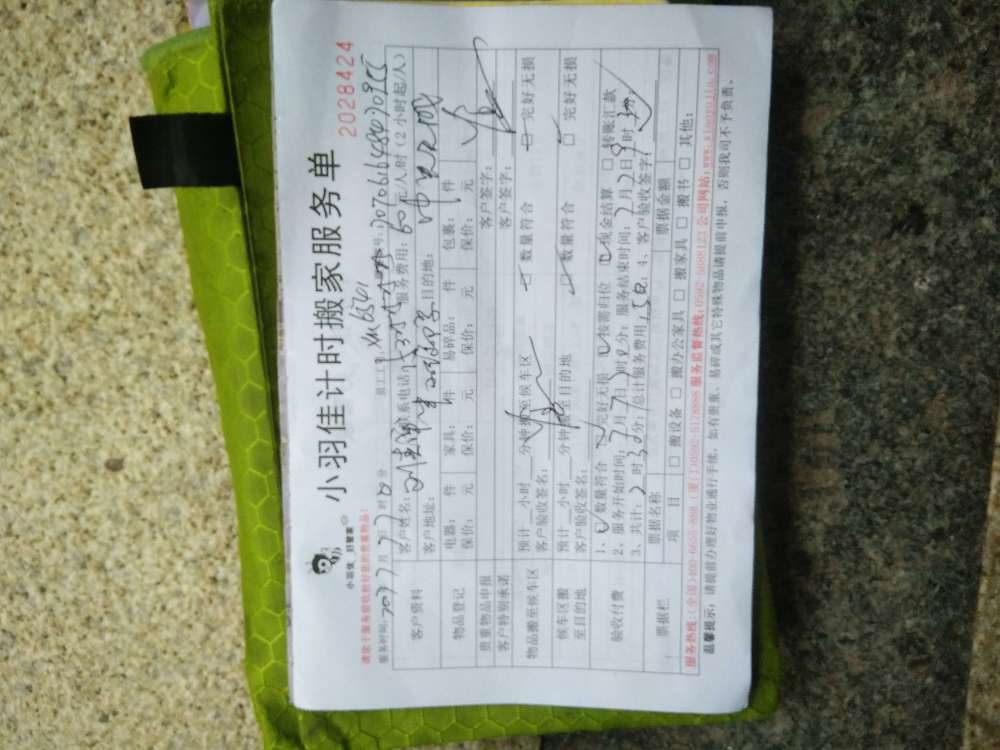 小羽佳计时搬家服务单
2028424
小羽佳 好管家
请您于服务前收检好您的贵重物品!
服务时间: 月 时 分
员工工号: XM6541
客户资料
客户姓名: 联系电话: 服务费用: 60元/人/时(2小时起/人)
客户地址: 目的地:
物品登记
电器: 件 家具: 件 易碎品: 件 包裹: 件
保价: 元 保价: 元 保价: 元 保价: 元
贵重物品申报 客户签字:
客户特别承诺 客户签字:
物品搬至候车区
预计 小时 分钟搬至候车区 数量符合 完好无损
客户验收签名:
候车区搬至目的地
预计 小时 分钟搬至目的地 数量符合 □ 完好无损
客户验收签名:
验收付费
1、 数量符合 完好无损 按需归位 现金结算 □ 转账汇款
2、服务开始时间: 7月 日 时 分; 服务结束时间: 7月2日9时 分
3、共计: 2时30分; 总计服务费用: 150; 4、客户验收签字:
票据栏
票据名称 票据金额
项 目 □ 搬设备 □ 搬办公家具 □ 搬家具 □ 搬书 □ 其他:
服务热线:(全国)400-6655-898 (厦门)0592-5178888 服务监督热线:0592-5088123 公司网站:www.xiaoyujia.com
温馨提示: 请提前办理好物业通行手续, 如有贵重、易碎或其它特殊物品请提前申报, 否则我司不予负责。